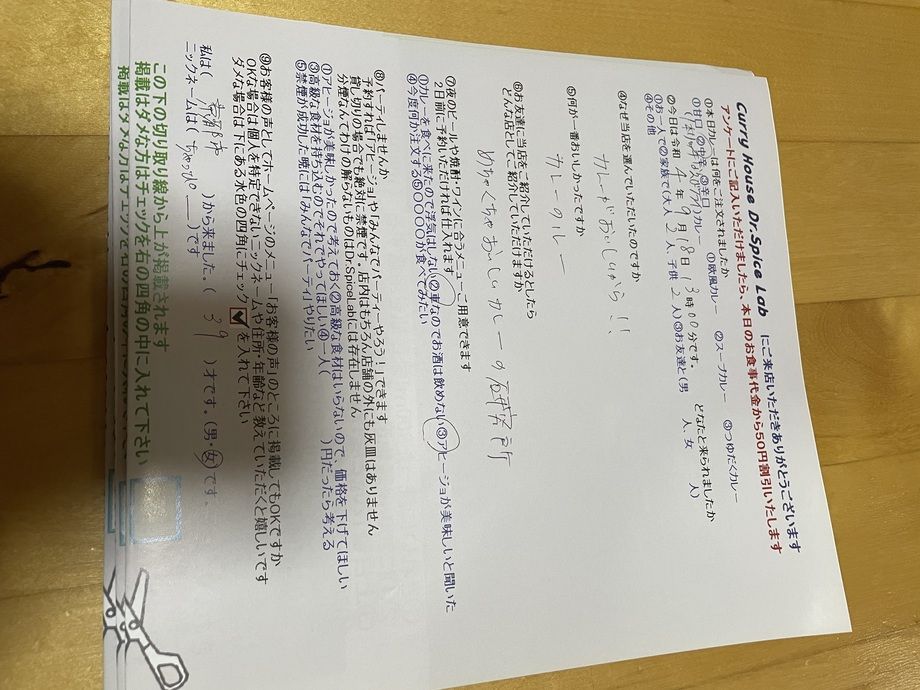 Curry House Dr.Spice Lab にご来店いただきありがとうございます
アンケートにご記入いただけましたら、本日のお食事代金から50円割引いたします
①本日カレーは何をご注文されましたか ①欧風カレー ②スープカレー ③つゆだくカレー
①甘口 ②中辛 ③辛口
カレー
②今日は令和 4年 9月 18日 13時00分です。 どなたと来られましたか
①お一人で ②ご家族で(大人 3人、子供 2人) ③お友達と(男 人、女 人)
④その他
④なぜ当店を選んでいただいたのですか
カレーがおいしいから!!
⑤何が一番おいしかったですか
カレーのルー
⑥お友達に当店をご紹介していただけるとしたら
どんな店としてご紹介していただけますか
めちゃくちゃおいしいカレーの研究所
⑦夜のビールや焼酎・ワインに合うメニューご用意できます
2日前に予約いただければ仕入れます
①カレーを食べに来たので浮気はしない ②車なのでお酒は飲めない ③アヒージョが美味しいと聞いた
④今度何か注文する ⑤〇〇〇〇が食べてみたい
⑧パーティしませんか
予約すれば「アヒージョ」や「みんなでパーティーやろう!」できます
貸し切りの場合でも絶対に禁煙です。店内はもちろん店舗の外にも灰皿はありません
分煙なんてわけの解らないものはDr.SpiceLabには存在しません
①アヒージョが美味しかったので考えておく ②高級な食材はいらないので、価格を下げてほしい
③高級な食材を持ち込むのでそれでやってほしい ④一人( )円だったら考える
⑤禁煙が成功した晩には「みんなでパーティ」やりたい
⑩お客様の声としてホームページのメニュー「お客様の声」のところに掲載してもOKですか
OKな場合は個人を特定できないニックネームや住所・年齢など教えていただくと嬉しいです
ダメな場合は下にある水色の四角にチェック☑を入れて下さい
私は( )から来ました。( 39 )才です。(男・女)です。
ニックネームは( ちゃっぴ )です
この下の切り取り線から上が掲載されます
掲載はダメな方はチェックを右の四角の中に入れて下さい